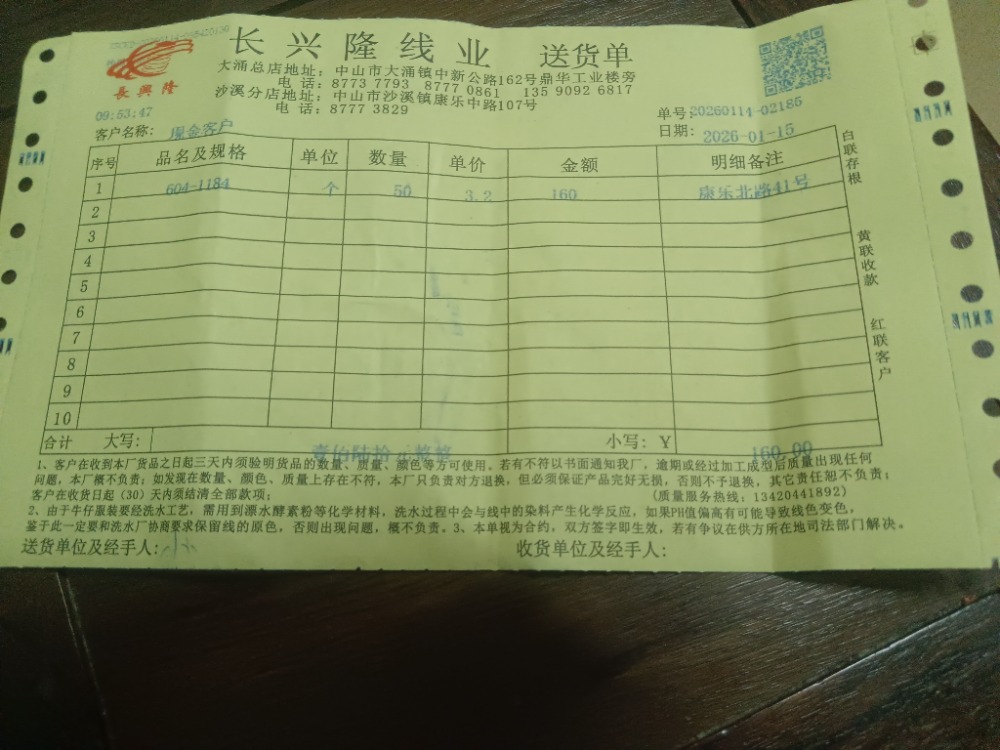 长兴隆线业 送货单
長興隆
大涌总店地址：中山市大涌镇中新公路162号鼎华工业楼旁
电 话：8773 7793 8777 0861 135 9092 6817
沙溪分店地址：中山市沙溪镇康乐中路107号
电 话：8777 3829
09:53:47
单号:20260114-02185
客户名称: 现金客户
日期: 2026-01-15
序号 品名及规格 单位 数量 单价 金额 明细备注
1 604-1184 个 50 3.2 160 康乐北路41号
2
3
4
5
6
7
8
9
10
白联存根
黄联收款
红联客户
合计 大写: 壹佰陆拾元整整 小写: Y 160.00
1、客户在收到本厂货品之日起三天内须验明货品的数量、质量、颜色等方可使用。若有不符以书面通知我厂，逾期或经过加工成型后质量出现任何
问题，本厂概不负责；如发现在数量、颜色、质量上存在不符，本厂只负责对方退换，但必须保证产品完好无损，否则不予退换，其它责任恕不负责；
客户在收货日起（30）天内须结清全部款项； (质量服务热线：13420441892)
2、由于牛仔服装要经洗水工艺，需用到漂水酵素粉等化学材料，洗水过程中会与线中的染料产生化学反应，如果PH值偏高有可能导致线色变色，
鉴于此一定要和洗水厂协商要求保留线的原色，否则出现问题，概不负责。3、本单视为合约，双方签字即生效，若有争议在供方所在地司法部门解决。
送货单位及经手人:
收货单位及经手人: